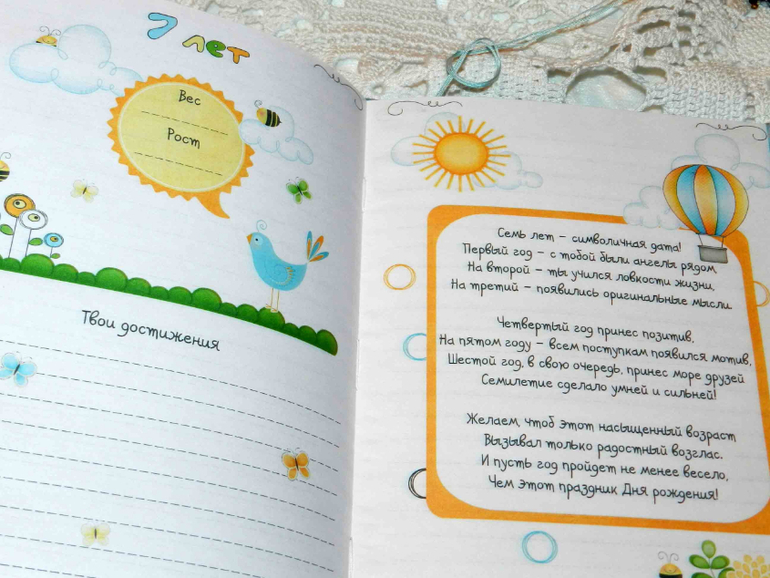 7 лет
Вес
Рост
Твои достижения
Семь лет – символичная дата!
Первый год – с тобой были ангелы рядом,
На второй – ты учился ловкости жизни,
На третий – появились оригинальные мысли.
Четвертый год принес позитив,
На пятом году – всем поступкам появился мотив,
Шестой год, в свою очередь, принес море друзей
Семилетие сделало умней и сильней!
Желаем, чтоб этот насыщенный возраст
Вызывал только радостный возглас.
И пусть год пройдет не менее весело,
Чем этот праздник Дня рождения!